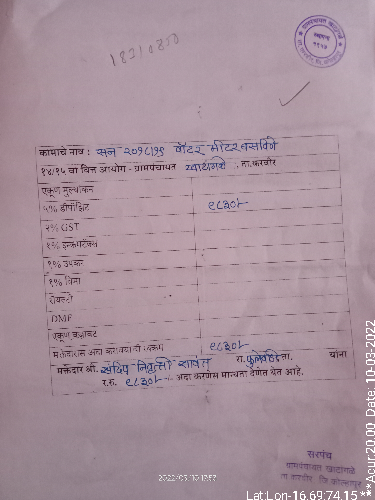 18210850
ग्रामपंचायत खाटांगळे
स्थापना
१९५७
कामाचे नाव : सन २०१८/१९ वॉटर मीटर बसविणे
१४/१५ वा वित्त आयोग - ग्रामपंचायत खाटांगळे, ता.करवीर
एकूण मुल्यांकन
५% डीपॉझिट ९८३०/-
२% GST
१% इन्कमटॅक्स
१% उपकर
१% विमा
रॉयल्टी
DMF
एकूण वजावट
मक्तेदारास अदा करावयाची रक्कम ९८३०/-
मक्तेदार श्री. संदिप निवृत्ती सावंत रा. ता. यांना
र.रु. ९८३०/- अदा करणेस मान्यता देणेत येत आहे.
सरपंच
ग्रामपंचायत खाटांगळे
ता.करवीर, जि.कोल्हापूर
2022/03/10 13:57
Lat:Lon-16.69:74.15***Acur:20.00 Date:10-03-2022